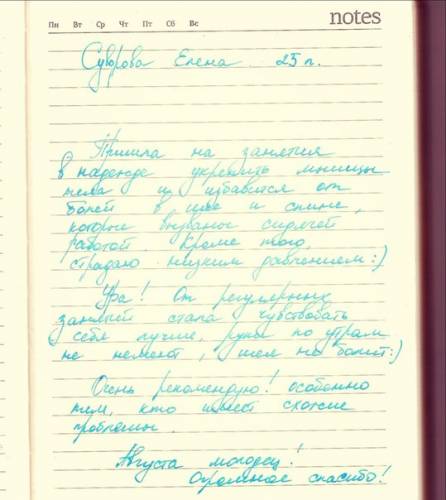 notes
Пн Вт Ср Чт Пт Сб Вс
Суворова Елена 25 л.
Пришла на занятия
в надежде укрепить мышцы
тела и избавится от
болей в шее и спине,
которые вызваны сидячей
работой. Кроме того,
страдаю низким давлением:)
Ура! От регулярных
занятий стала чувствовать
себя лучше, руки по утрам
не немеют, шея не болит:)
Очень рекомендую! особенно
тем, кто имеет схожие
проблемы.
Августа молодец!
Огромное спасибо!